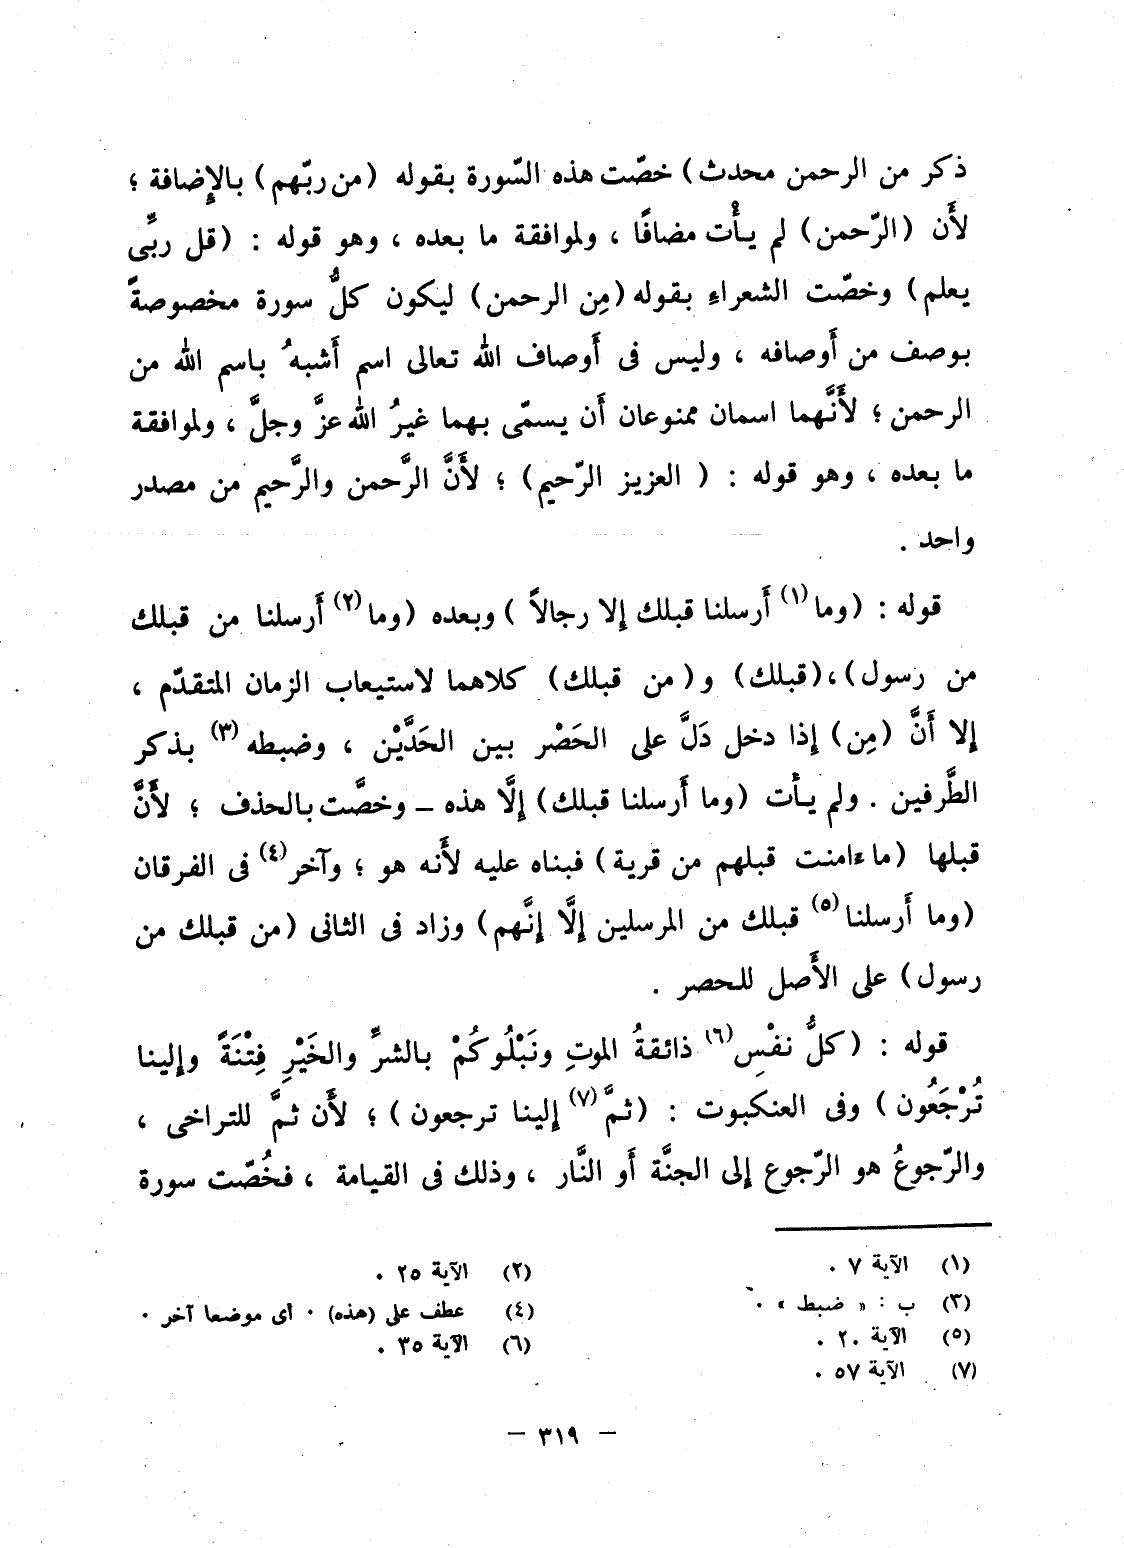 ذكر من الرحمن محدث) خصّت هذه السّورة بقوله (من ربّهم) بالإِضافة ؛
لأَن (الرّحمن) لم يأْت مضافًا ، ولموافقة ما بعده ، وهو قوله : (قل ربِّى
يعلم) وخصّت الشعراءِ بقوله (مِن الرحمن) ليكون كلُّ سورة مخصوصةً
بوصف من أَوصافه ، وليس فى أَوصاف الله تعالى اسم أَشبهُ باسم الله من
الرحمن ؛ لأَنَّهما اسمان ممنوعان أَن يسمّى بهما غيرُ الله عزَّ وجلَّ ، ولموافقة
ما بعده ، وهو قوله : ( العزيز الرّحيم) ؛ لأَنَّ الرَّحمن والرَّحيم من مصدر
واحد .
قوله : (وما(١) أَرسلنا قبلك إِلا رجالاً ) وبعده (وما(٢) أَرسلنا من قبلك
من رسول)،(قبلك) و(من قبلك) كلاهما لاستيعاب الزمان المتقدّم ،
إِلا أَنَّ (مِن) إِذا دخل دَلَّ على الحَصْر بين الحَدَّيْن ، وضبطه(٣) بذكر
الطَّرفين . ولم يأْت (وما أَرسلنا قبلك) إِلَّا هذه ــ وخصَّت بالحذف ؛ لأَنَّ
قبلها (ما ءامنت قبلهم من قرية) فبناه عليه لأَنه هو ؛ وآخر(٤) فى الفرقان
(وما أَرسلنا(٥) قبلك من المرسلين إِلَّا إِنَّهم) وزاد فى الثانى (من قبلك من
رسول) على الأَصل للحصر .
قوله : (كلُّ نفْسٍ(٦) ذائقةُ الموتِ ونَبْلُوكُمْ بالشرِّ والخَيْرِ فِتْنَةً وإِلينا
تُرْجَعُون) وفى العنكبوت : (ثمَّ(٧) إِلينا ترجعون) ؛ لأَن ثمَّ للتراخى ،
والرّجوعُ هو الرّجوع إِلى الجنَّة أَو النَّار ، وذلك فى القيامة ، فخُصّت سورة
(١) الآية ٧ .
(٢) الآية ٢٥ .
(٣) ب : « ضبط » .
(٤) عطف على (هذه) . أى موضعا آخر .
(٥) الآية ٢٠ .
(٦) الآية ٣٥ .
(٧) الآية ٥٧ .
– ٣١٩ –